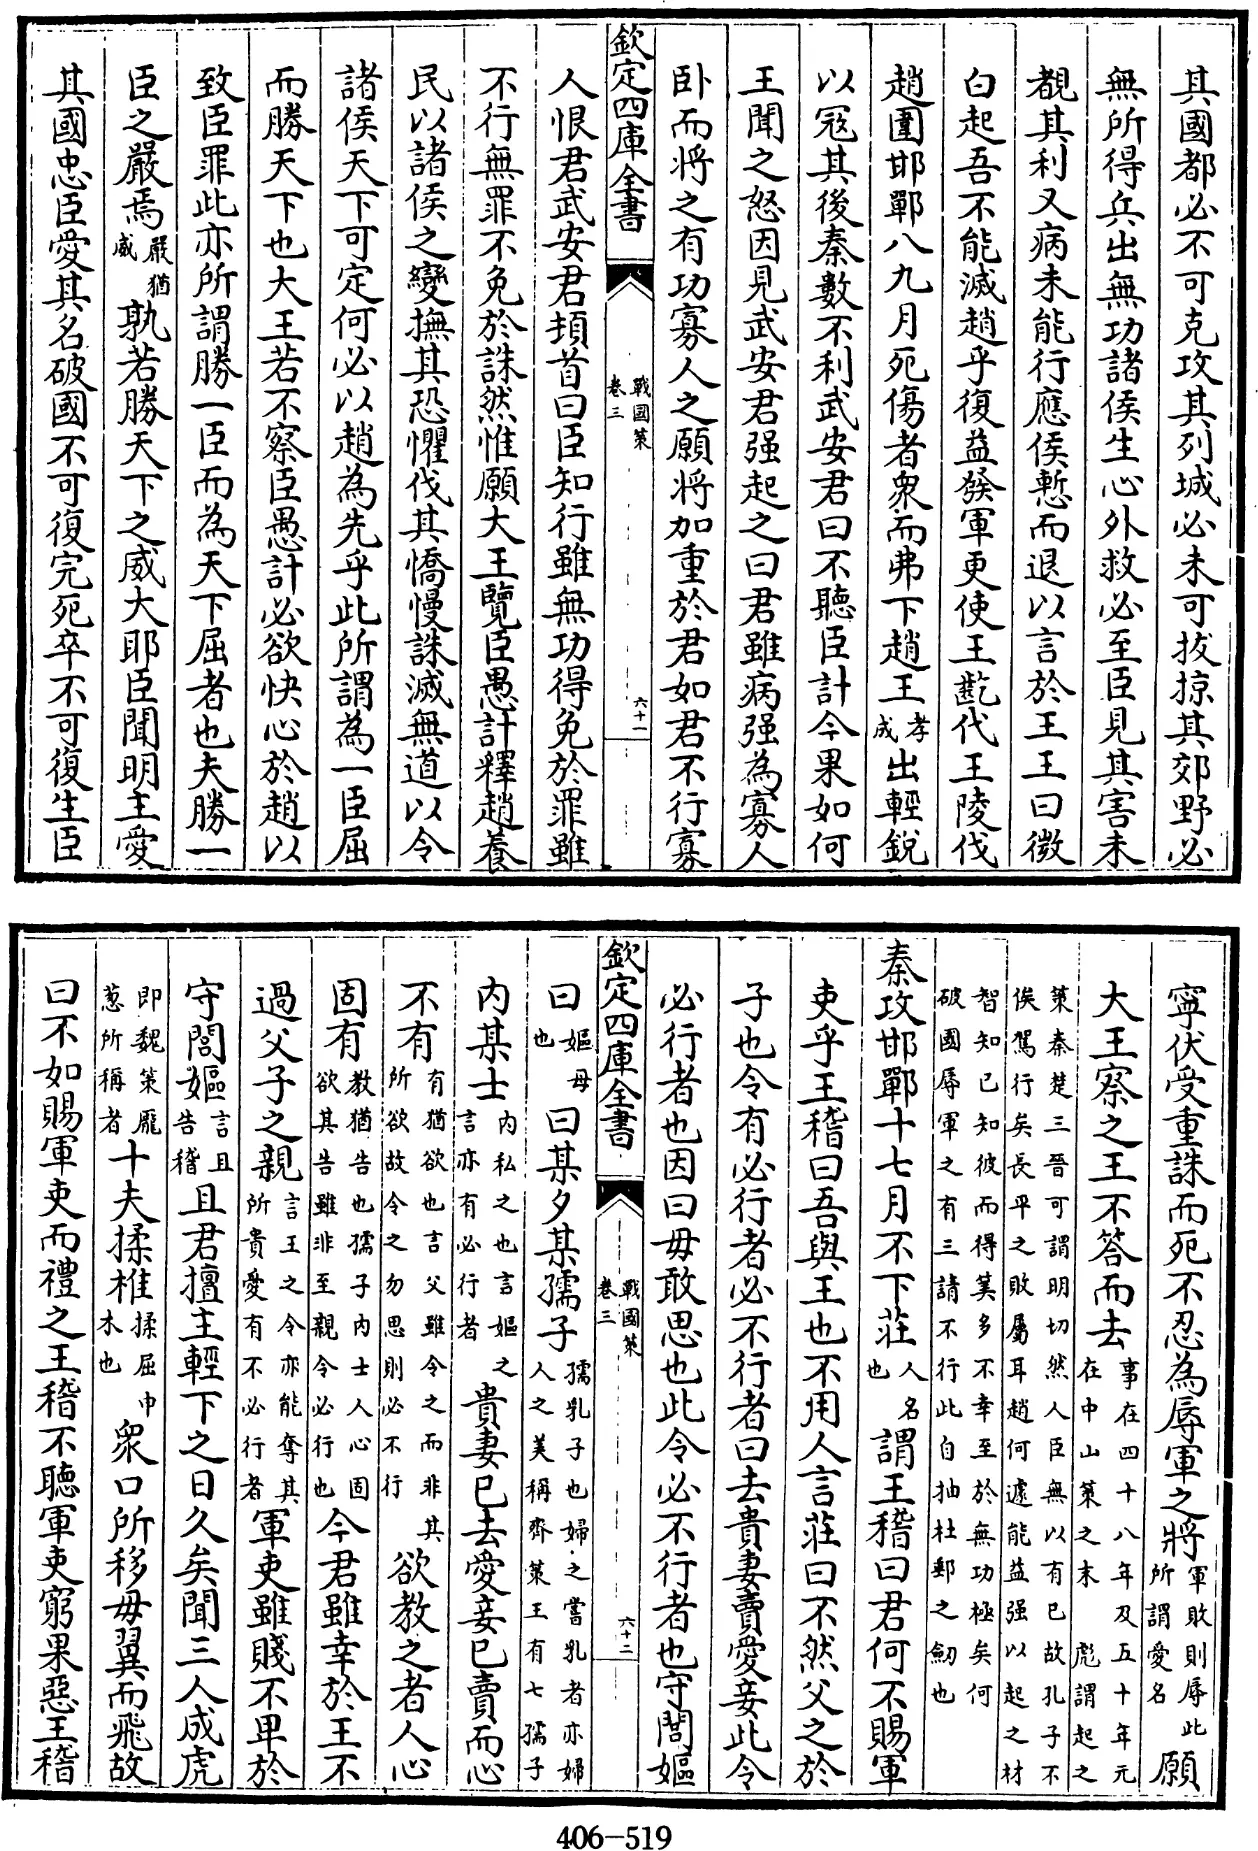 其國都必不可克攻其列城必未可拔掠其郊野必
無所得兵出無功諸侯生心外救必至臣見其害未
覩其利又病未能行應侯慙而退以言於王王曰微
白起吾不能滅趙乎復益發軍更使王齕代王陵伐
趙圍邯鄲八九月死傷者衆而弗下趙王孝成出輕銳
以寇其後秦數不利武安君曰不聽臣計今果如何
王聞之怒因見武安君强起之曰君雖病强為寡人
卧而將之有功寡人之願將加重於君如君不行寡
欽定四庫全書 戰國策卷三 六十一
人恨君武安君頓首曰臣知行雖無功得免於罪雖
不行無罪不免於誅然惟願大王覽臣愚計釋趙養
民以諸侯之變撫其恐懼伐其憍慢誅滅無道以令
諸侯天下可定何必以趙為先乎此所謂為一臣屈
而勝天下也大王若不察臣愚計必欲快心於趙以
致臣罪此亦所謂勝一臣而為天下屈者也夫勝一
臣之嚴焉嚴猶威孰若勝天下之威大耶臣聞明主愛
其國忠臣愛其名破國不可復完死卒不可復生臣
寧伏受重誅而死不忍為辱軍之將軍敗則辱此所謂愛名願
大王察之王不答而去事在四十八年及五十年元在中山策之末 彪謂起之
策秦楚三晉可謂明切然人臣無以有已故孔子不俟駕行矣長平之敗屬耳趙何遽能益强以起之材
智知已知彼而得筭多不幸至於無功極矣何破國辱軍之有三請不行此自抽杜郵之劒也
秦攻邯鄲十七月不下莊人名也謂王稽曰君何不賜軍
吏乎王稽曰吾與王也不用人言莊曰不然父之於
子也令有必行者必不行者曰去貴妻賣愛妾此令
必行者也因曰毋敢思也此令必不行者也守閭嫗
欽定四庫全書 戰國策卷三 六十二
曰嫗母也曰某夕某孺子孺乳子也婦之嘗乳者亦婦人之美稱齊策王有七孺子
内某士内私之也言嫗之言亦有必行者貴妻已去愛妾已賣而心
不有有猶欲也言父雖令之而非其所欲故令之勿思則必不行欲教之者人心
固有教猶告也孺子内士人心固欲其告雖非至親令必行也今君雖幸於王不
過父子之親言王之令亦能奪其所貴愛有不必行者軍吏雖賤不卑於
守閭嫗言且告稽且君擅主輕下之日久矣聞三人成虎
即魏策龎葱所稱者十夫揉椎揉屈申木也衆口所移毋翼而飛故
曰不如賜軍吏而禮之王稽不聽軍吏窮果惡王稽
406-519